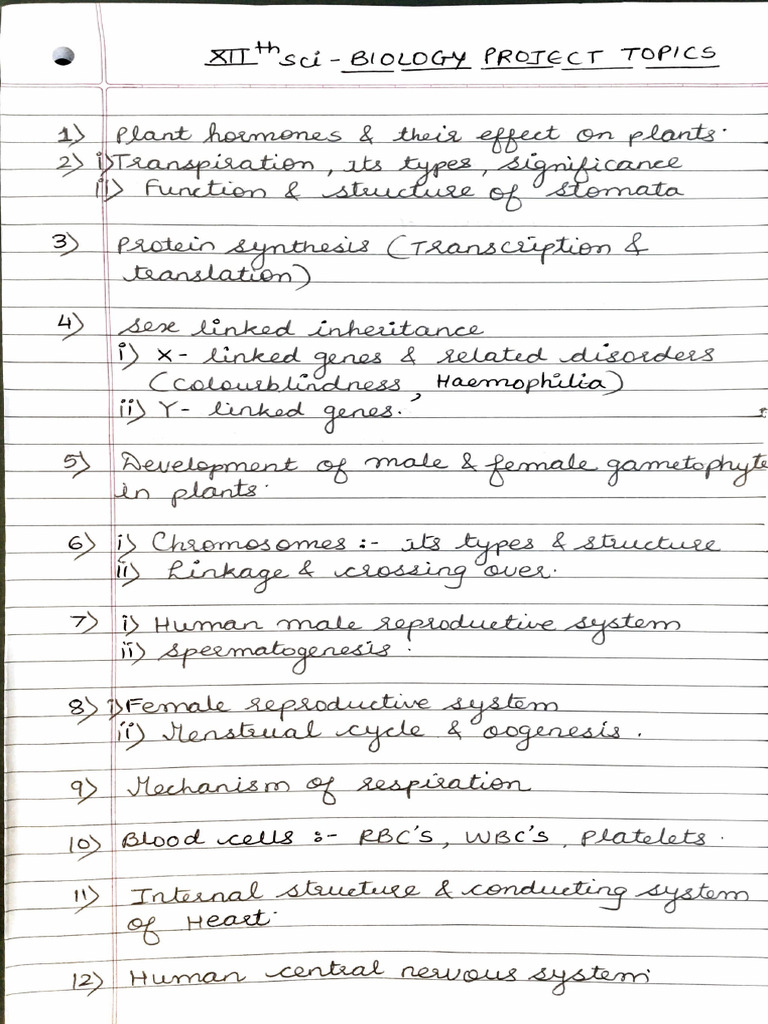 XIIth Sci - BIOLOGY PROJECT TOPICS
1) Plant hormones & their effect on plants.
2) i) Transpiration, its types, significance
ii) Function & structure of stomata
3) Protein synthesis (Transcription &
translation)
4) Sex linked inheritance
i) X- linked genes & related disorders
(Colourblindness, Haemophilia)
ii) Y- linked genes.
5) Development of male & female gametophyte
in plants.
6) i) Chromosomes :- its types & structure
ii) Linkage & crossing over.
7) i) Human male reproductive system
ii) Spermatogenesis.
8) i) Female reproductive system
ii) Menstrual cycle & oogenesis.
9) Mechanism of respiration
10) Blood cells :- RBC's, WBC's, Platelets.
11) Internal structure & conducting system
of Heart.
12) Human central nervous system.